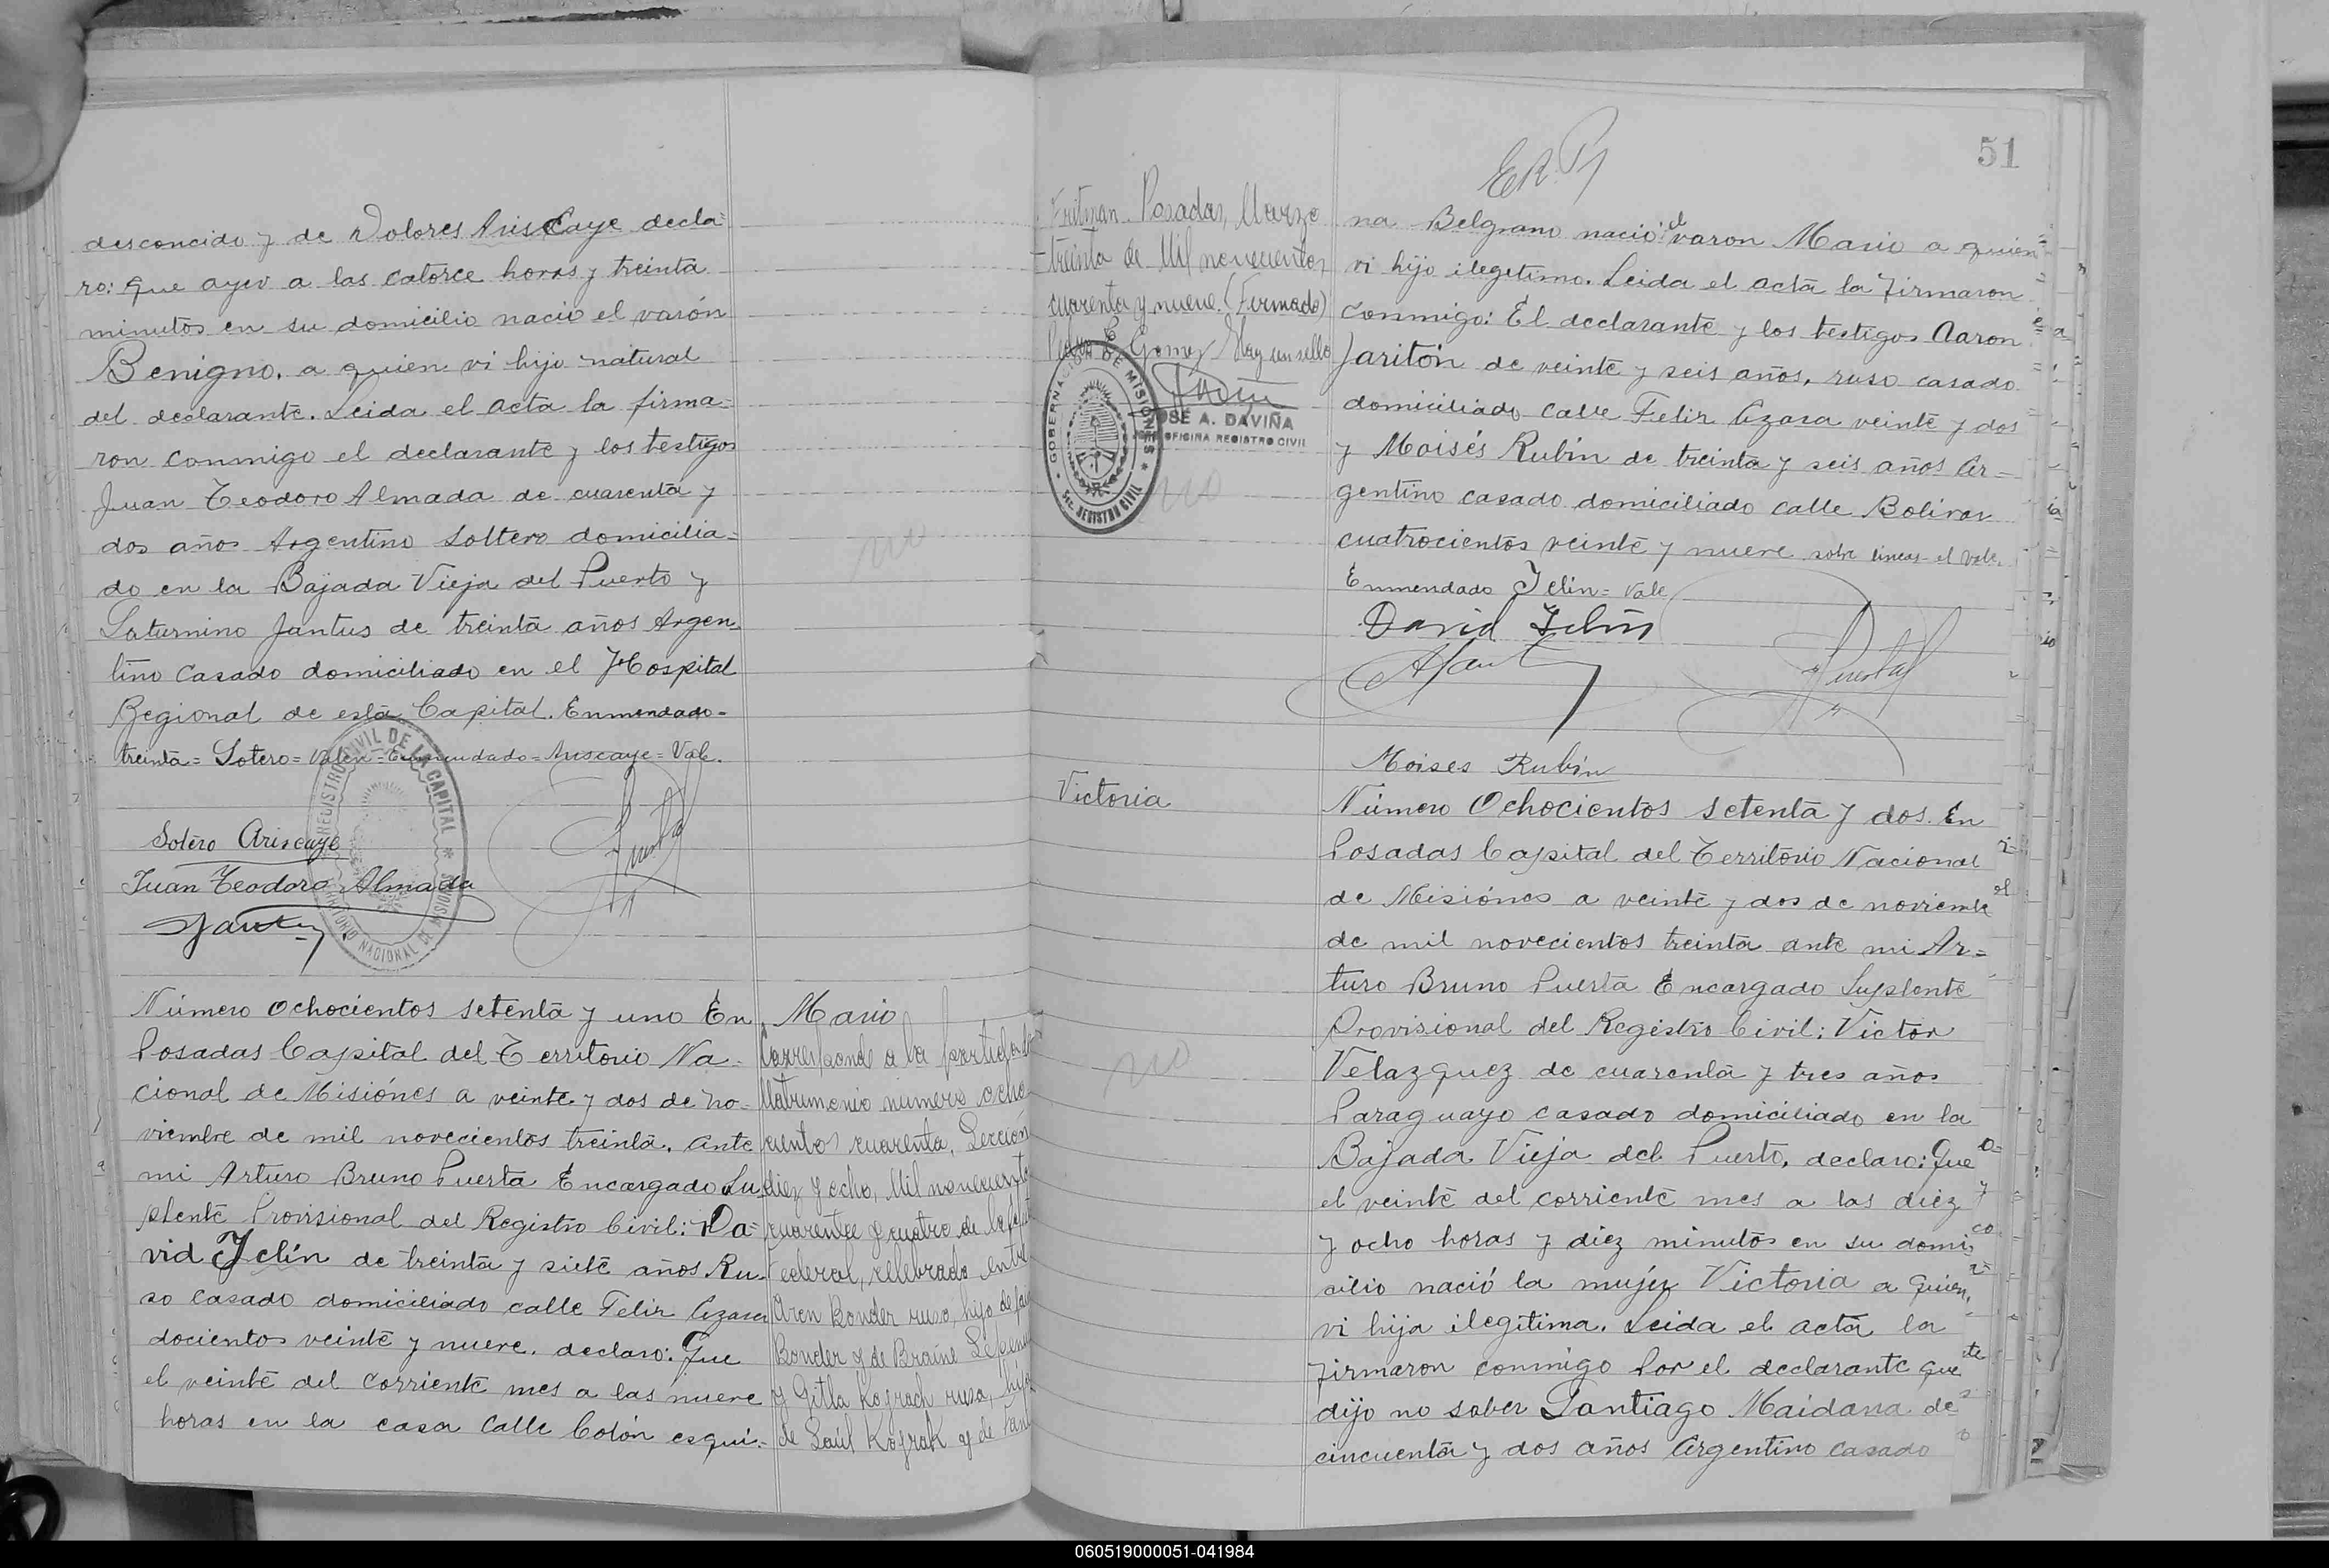 desconcido y de Dolores Ariscaye decla=
ro: que ayer a las catorce horas y treinta
minutos en su domicilio nació el varón
Benigno, a quien vi hijo natural
del declarante. Leida el acta la firma=
ron conmigo el declarante y los testigos
Juan Teodoro Almada de cuarenta y
dos años Argentino soltero domicilia=
do en la Bajada Vieja del Puerto y
Saturnino Jantus de treinta años Argen=
tino casado domiciliado en el Hospital
Regional de esta Capital. Enmendado=
treinta= Sotero= Valen= Enmendado= Ariscaye= Vale.
REGISTRO CIVIL DE LA CAPITAL * TERRITORIO NACIONAL DE MISIONES
Sotero Ariscaye
Juan Teodoro Almada
no
Número Ochocientos setenta y uno En
Posadas Capital del Territorio Na=
cional de Misiónes a veinte y dos de no=
viembre de mil novecientos treinta. ante
mi Arturo Bruno Puerta Encargado Su=
plente Provisional del Registro Civil: Da=
vid Jelin de treinta y siete años Ru=
so casado domiciliado calle Felix Azara
docientos veinte y nueve. declaro: Que
el veinte del corriente mes a las nueve
horas en la casa calle Colón esqui=
Mario
Corresponde a la partida de
Matrimonio numero ocho
cientos cuarenta, Sección
diez y ocho, Mil novecientos
cuarenta y cuatro de la Capital
Federal, celebrado entre
Aron Bonder ruso, hijo de
Bonder y de Braine
y Gitla Kograch rusa, hija
de Saúl Kograk y de
Posadas, Marzo
treinta de Mil novecientos
cuarenta y nueve. (Firmado)
Gomez Hay un sello
GOBERNACION DE MISIONES * SEC. REGISTRO CIVIL
JOSE A. DAVIÑA
OFICINA REGISTRO CIVIL
no
51
na Belgrano nació el varon Mario a quien
vi hijo ilegetimo. Leida el acta la firmaron
conmigo: El declarante y los testigos Aaron
Jaritón de veinte y seis años, ruso casado
domiciliado calle Felix Azara veinte y dos
y Moisés Rubín de treinta y seis años Ar=
gentino casado domiciliado calle Bolivar
cuatrocientos veinte y nueve sobre lineas-el vale.
Enmendado Jelin= Vale
David Jelin
Moises Rubín
Victoria
no
Número Ochocientos setenta y dos. En
Posadas Capital del Territorio Nacional
de Misiónes a veinte y dos de noviembre
de mil novecientos treinta ante mi Ar=
turo Bruno Puerta Encargado Suplente
Provisional del Registro Civil: Victor
Velazquez de cuarenta y tres años
Paraguayo casado domiciliado en la
Bajada Vieja del Puerto, declaro: Que
el veinte del corriente mes a las diez
y ocho horas y diez minutos en su domi=
cilio nació la mujer Victoria a quien
vi hija ilegitima. Leida el acta la
firmaron conmigo Por el declarante que
dijo no saber Santiago Maidana de
cincuenta y dos años Argentino casado
060519000051-041984